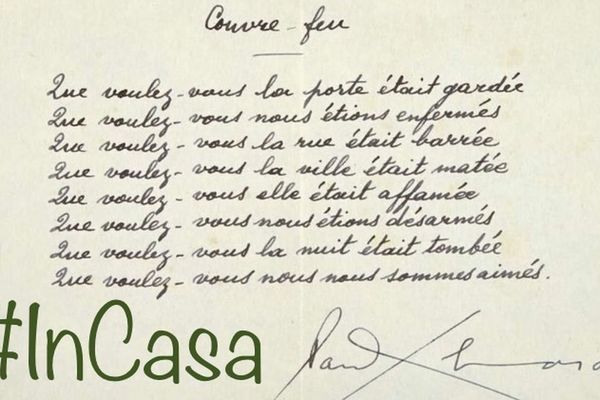 Couvre-feu
Que voulez-vous la porte était gardée
Que voulez-vous nous étions enfermés
Que voulez-vous la rue était barrée
Que voulez-vous la ville était matée
Que voulez-vous elle était affamée
Que voulez-vous nous étions désarmés
Que voulez-vous la nuit était tombée
Que voulez-vous nous nous sommes aimés.
#InCasa
Paul